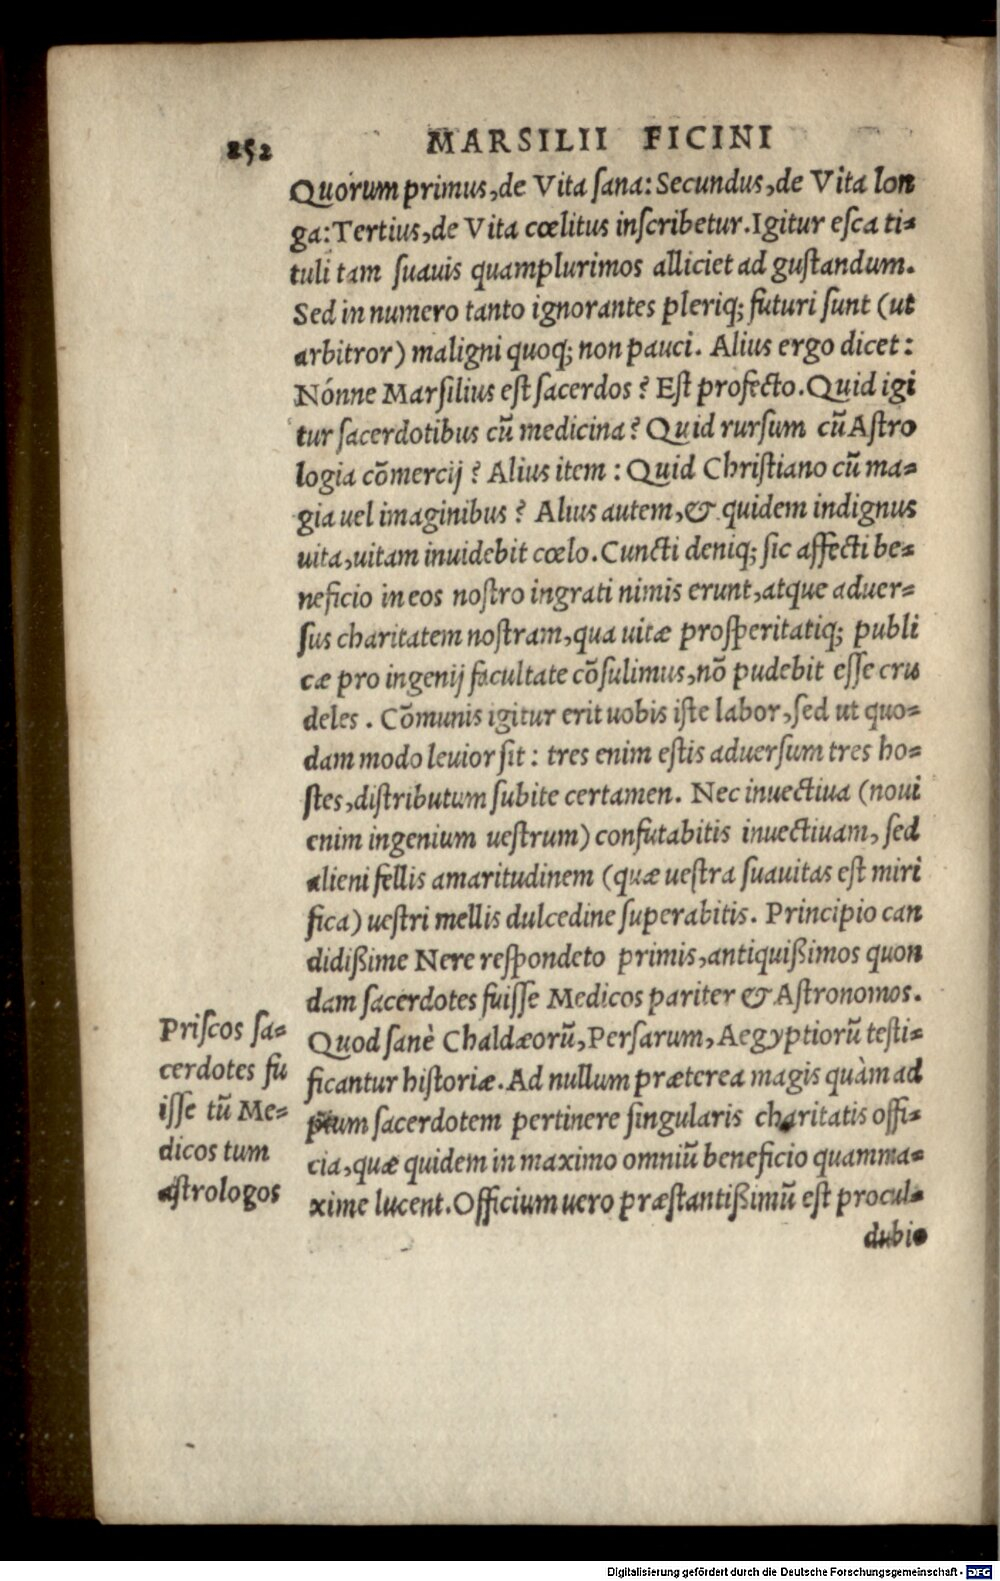 252
MARSILII FICINI
Quorum primus, de Vita ſana: Secundus, de Vita lon
ga: Tertius, de Vita cœlitus inſcribetur. Igitur eſca ti=
tuli tam ſuauis quamplurimos alliciet ad guſtandum.
Sed in numero tanto ignorantes pleriq; futuri ſunt (ut
arbitror) maligni quoq; non pauci. Alius ergo dicet:
Nónne Marſilius eſt ſacerdos? Eſt profecto. Quid igi
tur ſacerdotibus cũ medicina? Quid rurſum cũ Aſtro
logia cõmercij? Alius item: Quid Chriſtiano cũ ma=
gia uel imaginibus? Alius autem, & quidem indignus
uita, uitam inuidebit cœlo. Cuncti deniq; ſic affecti be=
neficio in eos noſtro ingrati nimis erunt, atque aduer=
ſus charitatem noſtram, qua uitæ proſperitatiq; publi
cæ pro ingenij facultate cõſulimus, nõ pudebit eſſe cru
deles. Cõmunis igitur erit uobis iſte labor, ſed ut quo=
dam modo leuior ſit: tres enim eſtis aduerſum tres ho=
ſtes, diſtributum ſubite certamen. Nec inuectiua (noui
enim ingenium ueſtrum) confutabitis inuectiuam, ſed
alieni fellis amaritudinem (quæ ueſtra ſuauitas eſt miri
fica) ueſtri mellis dulcedine ſuperabitis. Principio can
didißime Nere reſpondeto primis, antiquißimos quon
dam ſacerdotes fuiſſe Medicos pariter & Aſtronomos.
Quod ſanè Chaldæorũ, Perſarum, Aegyptiorũ teſti=
ficantur hiſtoriæ. Ad nullum præterea magis quàm ad
pium ſacerdotem pertinere ſingularis charitatis offi=
cia, quæ quidem in maximo omniũ beneficio quamma=
xime lucent. Officium uero præſtantißimũ eſt procul=
dubio
Priſcos ſa=
cerdotes fu
iſſe tũ Me=
dicos tum
aſtrologos
Digitalisierung gefördert durch die Deutsche Forschungsgemeinschaft - DFG